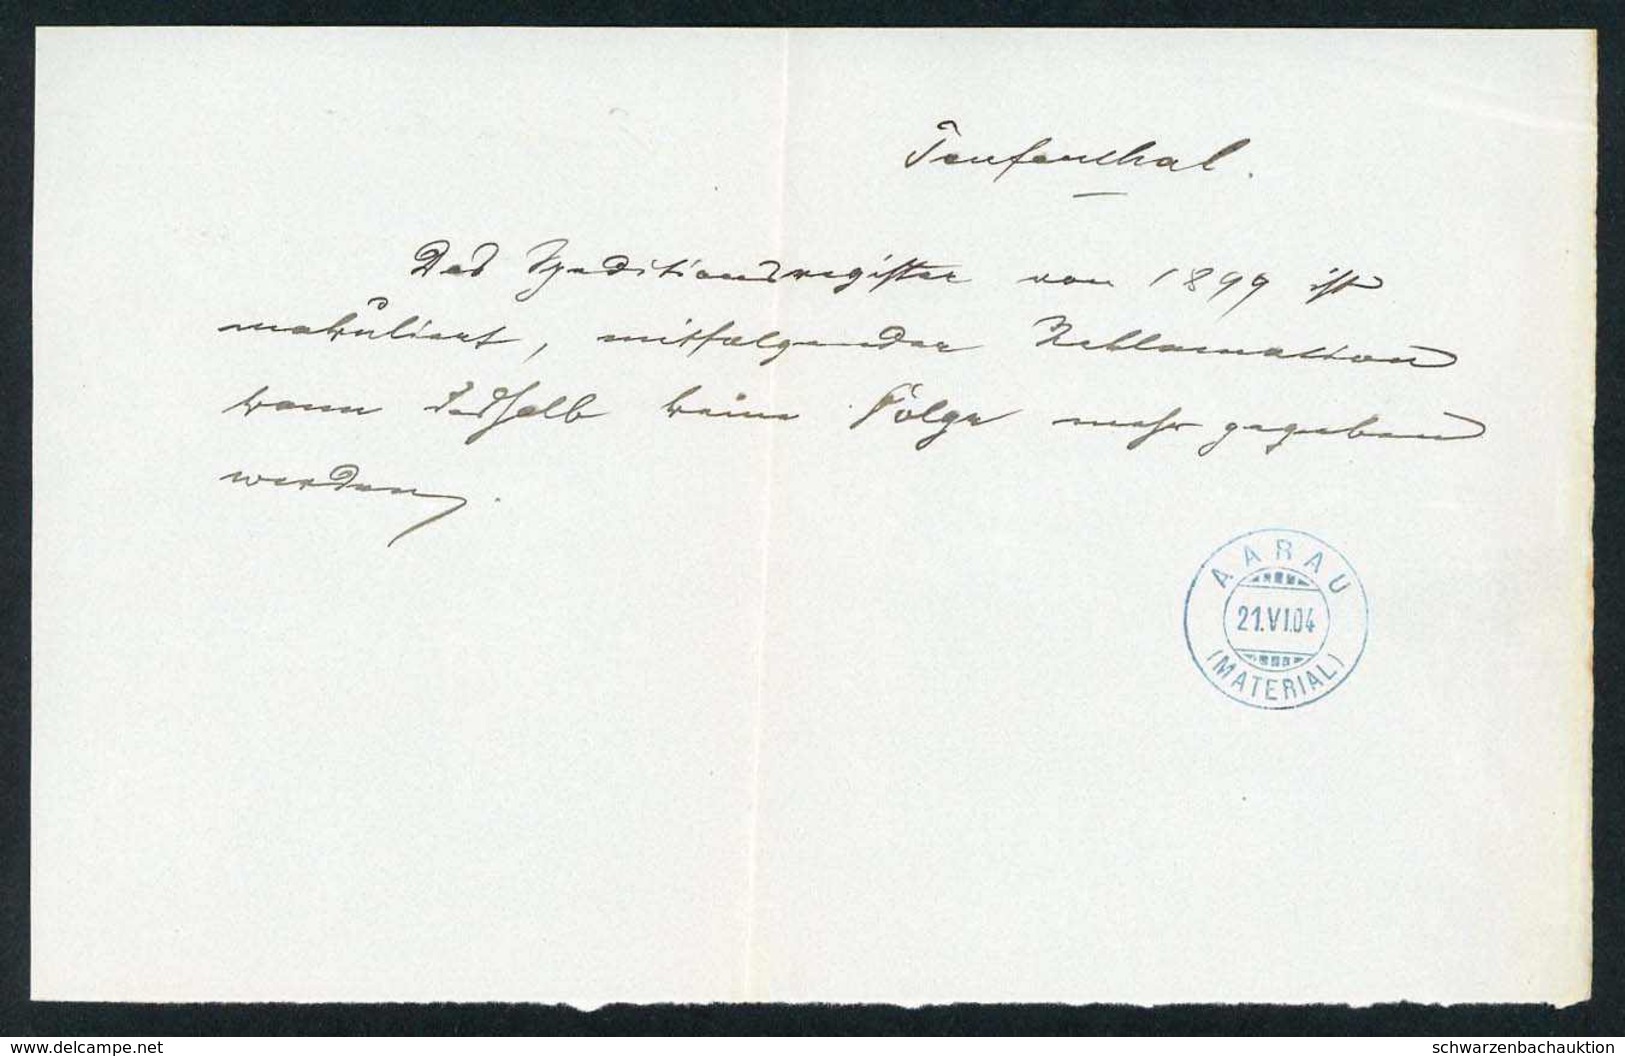 Teufenthal.
Das Speditionsregister von 1899 ist
makuliert, mitfolgender Reklamation
kann deshalb keine Folge mehr gegeben
werden.
AARAU
21.VI.04
(MATERIAL)
www.delcampe.net
schwarzenbachauktion